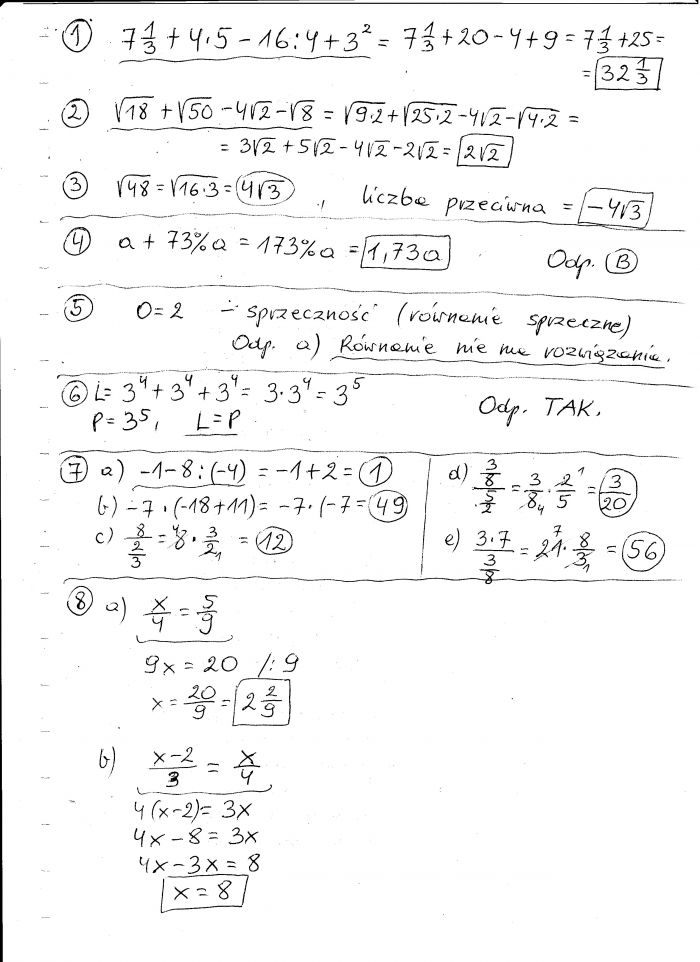 ① 7 1/3 + 4·5 − 16:4 + 3² = 7 1/3 + 20 − 4 + 9 = 7 1/3 + 25 =
= 32 1/3
② √18 + √50 − 4√2 − √8 = √9·2 + √25·2 − 4√2 − √4·2 =
= 3√2 + 5√2 − 4√2 − 2√2 = 2√2
③ √48 = √16·3 = 4√3 , liczba przeciwna = −4√3
④ a + 73%a = 173%a = 1,73a Odp. B
⑤ 0=2 − sprzeczność (równanie sprzeczne)
Odp. a) Równanie nie ma rozwiązania.
⑥ L = 3⁴ + 3⁴ + 3⁴ = 3·3⁴ = 3⁵ Odp. TAK.
P = 3⁵, L=P
⑦ a) −1−8:(−4) = −1+2 = 1
b) −7·(−18+11) = −7·(−7 = 49
c) 8/(2/3) = 8⁴ · 3/2₁ = 12
d) (3/8)/(5/2) = 3/8₄ · 2¹/5 = 3/20
e) (3·7)/(3/8) = 21⁷ · 8/3₁ = 56
⑧ a) x/4 = 5/9
9x = 20 /:9
x = 20/9 = 2 2/9
b) (x−2)/3 = x/4
4(x−2) = 3x
4x − 8 = 3x
4x − 3x = 8
x = 8